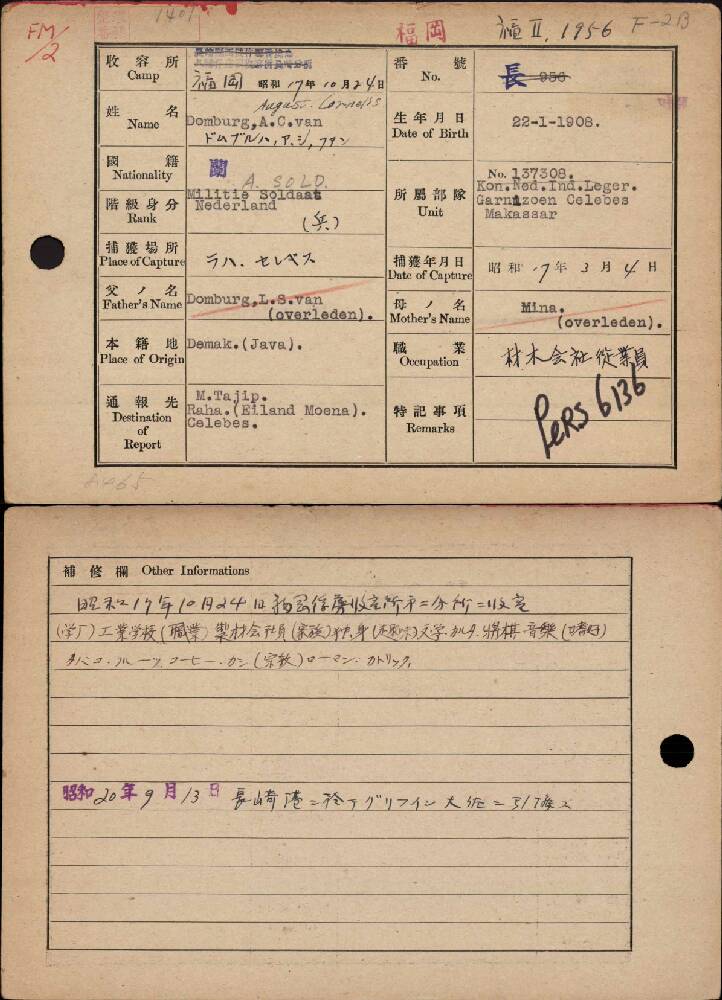 FM/2
1401
福岡
福 II. 1956
F-2B
收容所 Camp
福岡 昭和 17年 10月 24日
番號 No.
長 956
姓名 Name
August Cornelis
Domburg, A.C.van
ドムブルハ, ア, シ, フアン
生年月日 Date of Birth
22-1-1908.
國籍 Nationality
蘭
A. SOLD.
階級身分 Rank
Militie Soldaat
Nederland
(兵)
所屬部隊 Unit
No. 137308.
Kon.Ned.Ind.Leger.
Garnizoen Celebes
Makassar
捕獲場所 Place of Capture
ラハ. セレベス
捕獲年月日 Date of Capture
昭和 17年 3月 4日
父ノ名 Father's Name
Domburg, L.S.van
(overleden).
母ノ名 Mother's Name
Mina.
(overleden).
本籍地 Place of Origin
Demak.(Java).
職業 Occupation
材木会社従業員
通報先 Destination of Report
M.Tajip.
Raha.(Eiland Moena).
Celebes.
特記事項 Remarks
PERS 6136
補修欄 Other Informations
昭和17年10月24日福岡俘虜収容所第二分所ニ収容
(学厂)工業学校(職業)製材会社員(家族)独身(趣味)文学.カルタ.将棋.音楽(嗜好)
タバコ.フルーツ.コーヒー.カシ(宗教)ローマン.カトリック.
昭和20年9月13日 長崎港ニ於テグリフイン大佐ニ引渡ス